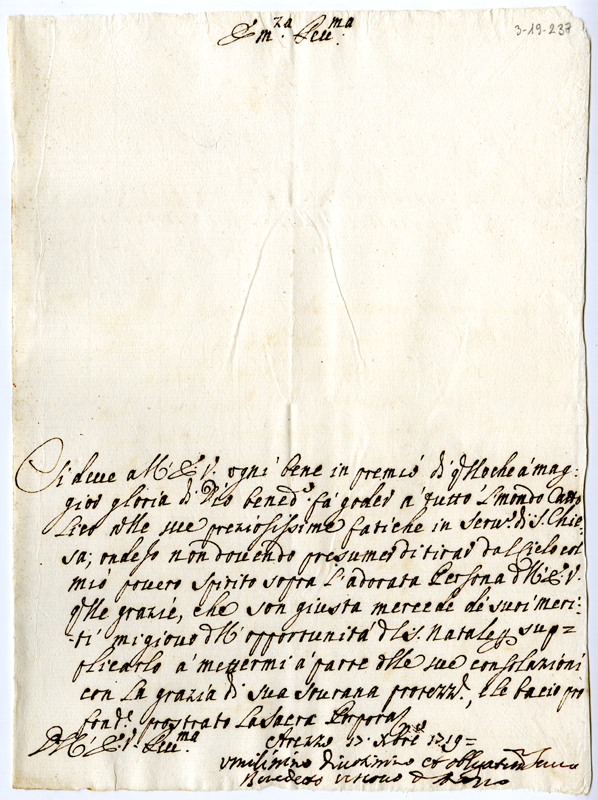 3-19-237
Em.za Reu.ma
Si deue all'E.V. ogni bene in premio di q̃llo che à mag:
gior gloria di Dio bened.o fà goder à tutto l mondo Catto
lico nelle sue preziosissime fatiche in seru.o di S. Chie
sa; ond'esso non douendo presumer di tirar dal Cielo col
mio pouero spirito sopra l'adorata Persona dell'E.V.
q̃lle grazie, che son giusta mercede de suoi meri:
:ti mi giouo dell'opportunità del S. Natale sup=
plicarlo à mettermi à parte delle sue consolazioni
con la grazia di sua sourana protezz.e, e le bacio pro
fond.e prostrato la sacra Porpora
Dell'E.V. Reu.ma
Arezzo 17. Xbre 1719=
Vmilissimo diuotissimo et obligatissimo seruo
Benedetto Vescouo d'Arezzo